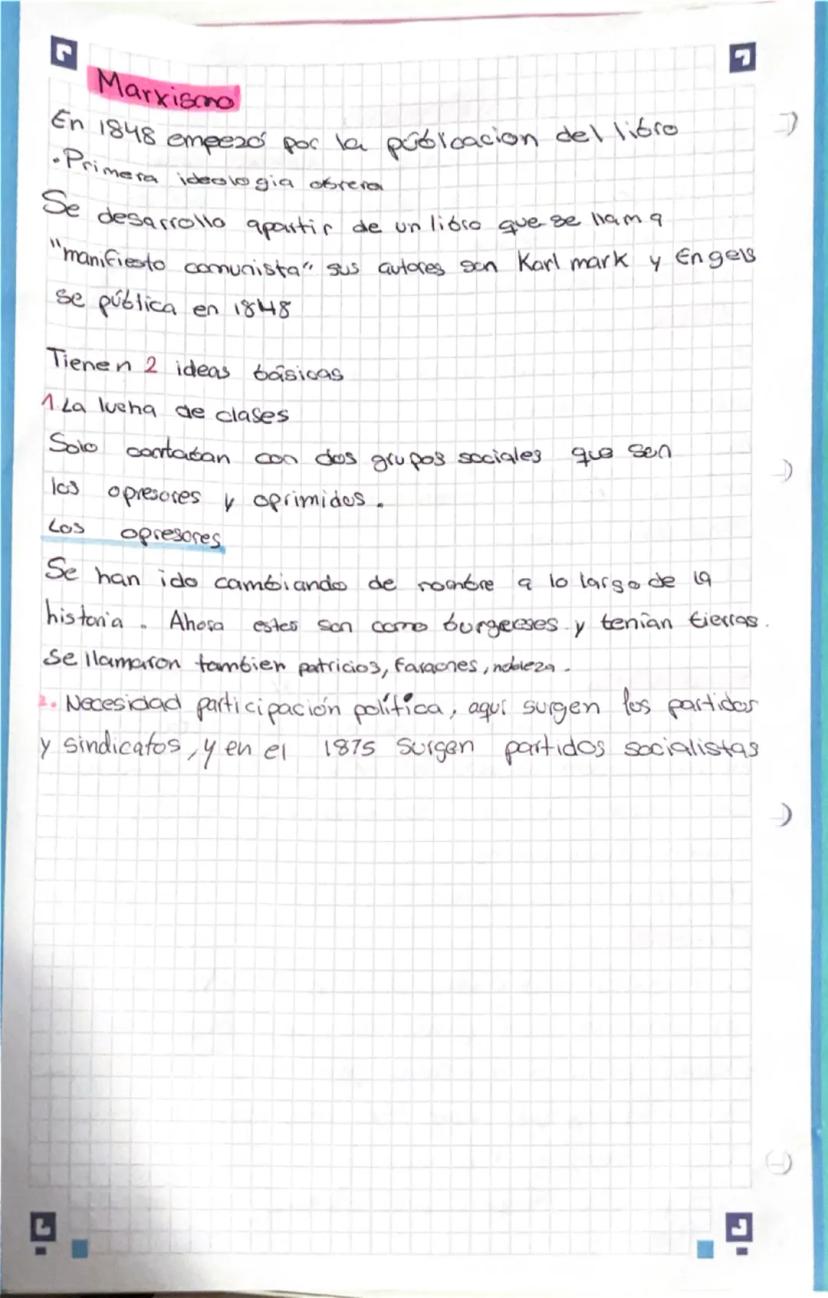 Marxismo
En 1848 empezó por la públicacion del libro
•Primera ideologia obrera
Se desarrollo apartir de un libro que se llama
"manifiesto comunista" sus autores son Karl mark y Engels
se pública en 1848
Tienen 2 ideas básicas
1 La lucha de clases
Solo contaban con dos grupos sociales que son
los opresores y oprimidos.
Los opresores
Se han ido cambiando de nombre a lo largo de la
historia. Ahora estes son como burgeeses y tenían tierras.
Se llamaron tambien patricios, faraones, nobleza.
2. Necesidad participación política, aquí surgen los partidos
y sindicatos, y en el 1875 surgen partidos socialistas